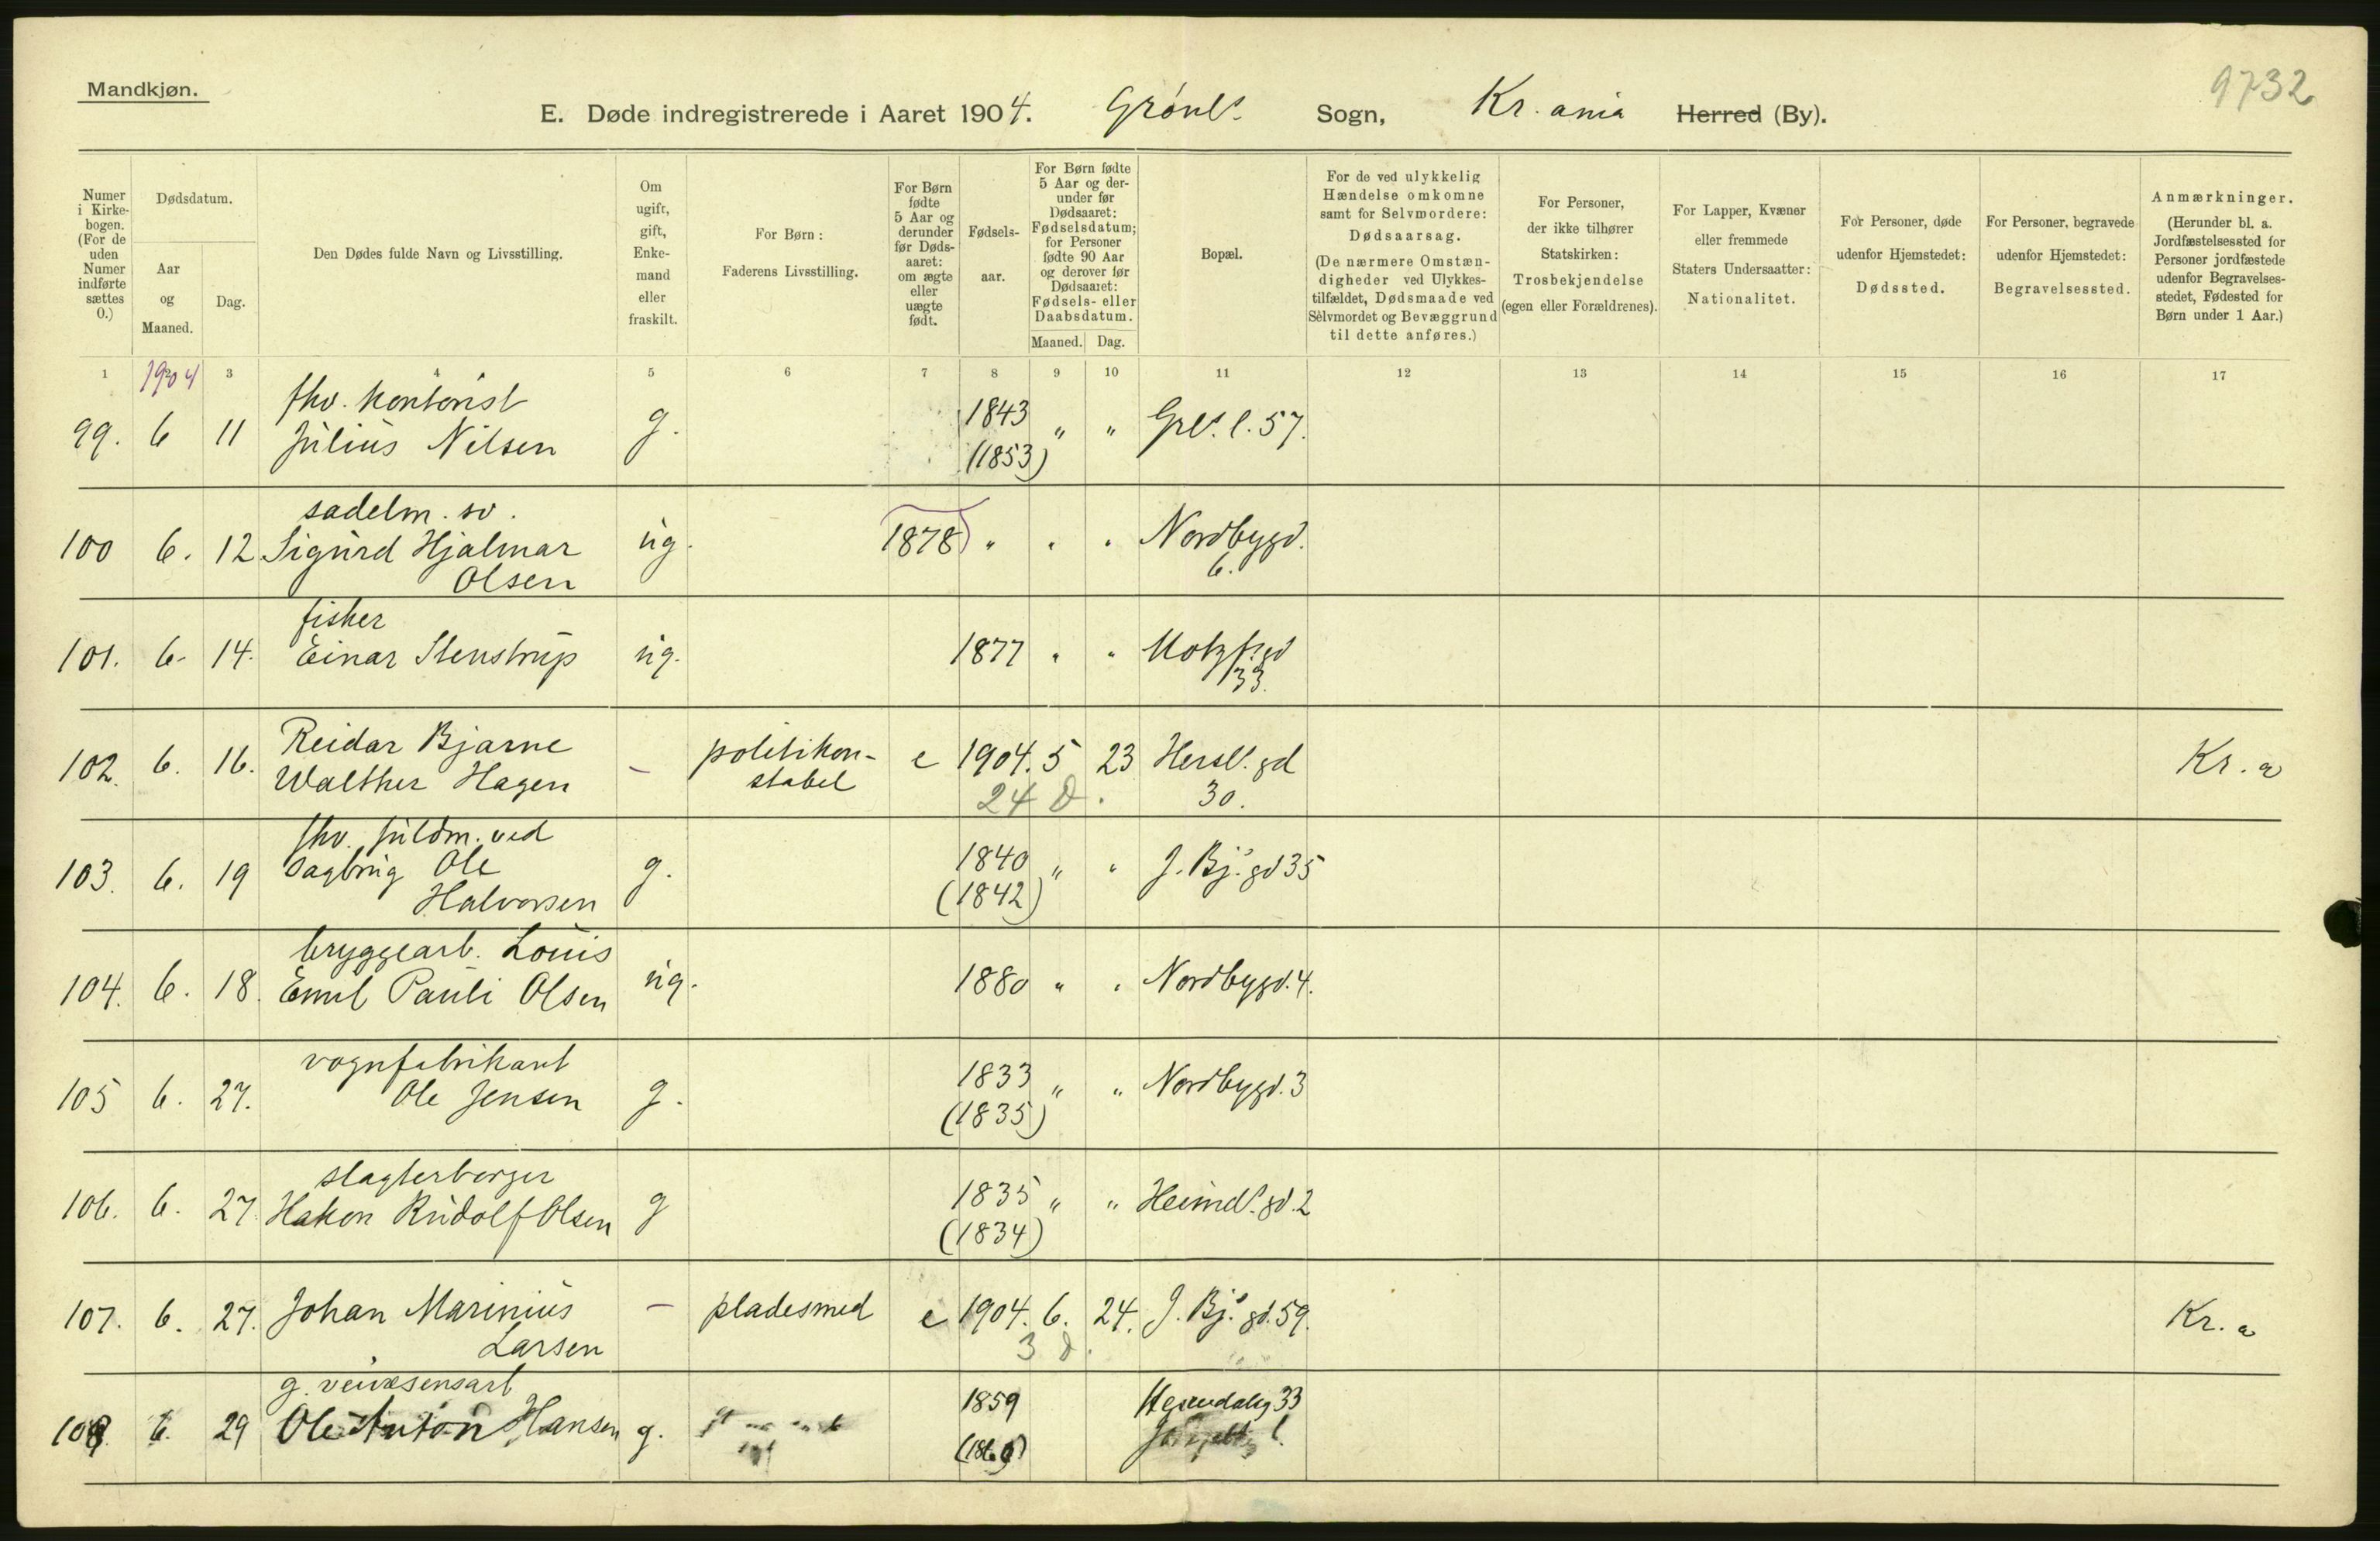 Mandkjøn.
9732
E. Døde indregistrerede i Aaret 1904. Grønl. Sogn, Kr.ania Herred (By).
Numer i Kirke-bogen. (For de uden Numer indførte sættes 0.)
Dødsdatum.
Aar og Maaned.
Dag.
Den Dødes fulde Navn og Livsstilling.
Om ugift, gift, Enke-mand eller fraskilt.
For Børn: Faderens Livsstilling.
For Børn fødte 5 Aar og derunder før Døds-aaret: om ægte eller uægte født.
Fødsels-aar.
For Børn fødte 5 Aar og der-under før Dødsaaret: Fødselsdatum; for Personer fødte 90 Aar og derover før Dødsaaret: Fødsels- eller Daabsdatum.
Maaned. Dag.
Bopæl.
For de ved ulykkelig Hændelse omkomne samt for Selvmordere: Dødsaarsag. (De nærmere Omstæn-digheder ved Ulykkes-tilfældet, Dødsmaade ved Selvmordet og Bevæggrund til dette anføres.)
For Personer, der ikke tilhører Statskirken: Trosbekjendelse (egen eller Forældrenes).
For Lapper, Kvæner eller fremmede Staters Undersaatter: Nationalitet.
For Personer, døde udenfor Hjemstedet: Dødssted.
For Personer, begravede udenfor Hjemstedet: Begravelsessted.
Anmærkninger. (Herunder bl. a. Jordfæstelsessted for Personer jordfæstede udenfor Begravelses-stedet, Fødested for Børn under 1 Aar.)
1 1904 3 4 5 6 7 8 9 10 11 12 13 14 15 16 17
fhv. kontorist
99. 6 11 Julius Nilsen g. 1843 " " Grl. l. 57.
(1853)
sadelm. sv.
100 6. 12 Sigurd Hjalmar ug. 1878) " " " Nordbygd.
Olsen 6.
fisker
101. 6. 14. Einar Stenstrup ug. 1877 " " Motzf. gd
33.
102. 6. 16. Reidar Bjarne – politikon- e 1904. 5 23 Hersl. gd Kr. a
Walther Hagen stabel 24 d. 30.
fhv. fuldm. ved
103. 6. 19 Sagbrug Ole g. 1840 " " J. Bj. gd 35
Halvorsen (1842)
bryggearb. Louis
104. 6. 18. Emil Pauli Olsen ug. 1880 " " Nordbygd. 4.
vognfabrikant
105 6. 27. Ole Jensen g. 1833 " " Nordbygd. 3
(1835)
slagterborger
106. 6. 27. Hakon Rudolf Olsen g 1835 " " Heimd. gd. 2
(1834)
107. 6. 27. Johan Marinius – pladesmed e 1904. 6. 24. J. Bj. gd. 59. Kr. a
Larsen 3 d.
g. veivæsensarb
108 6. 29 Ole Anton Hansen g. 1859 33